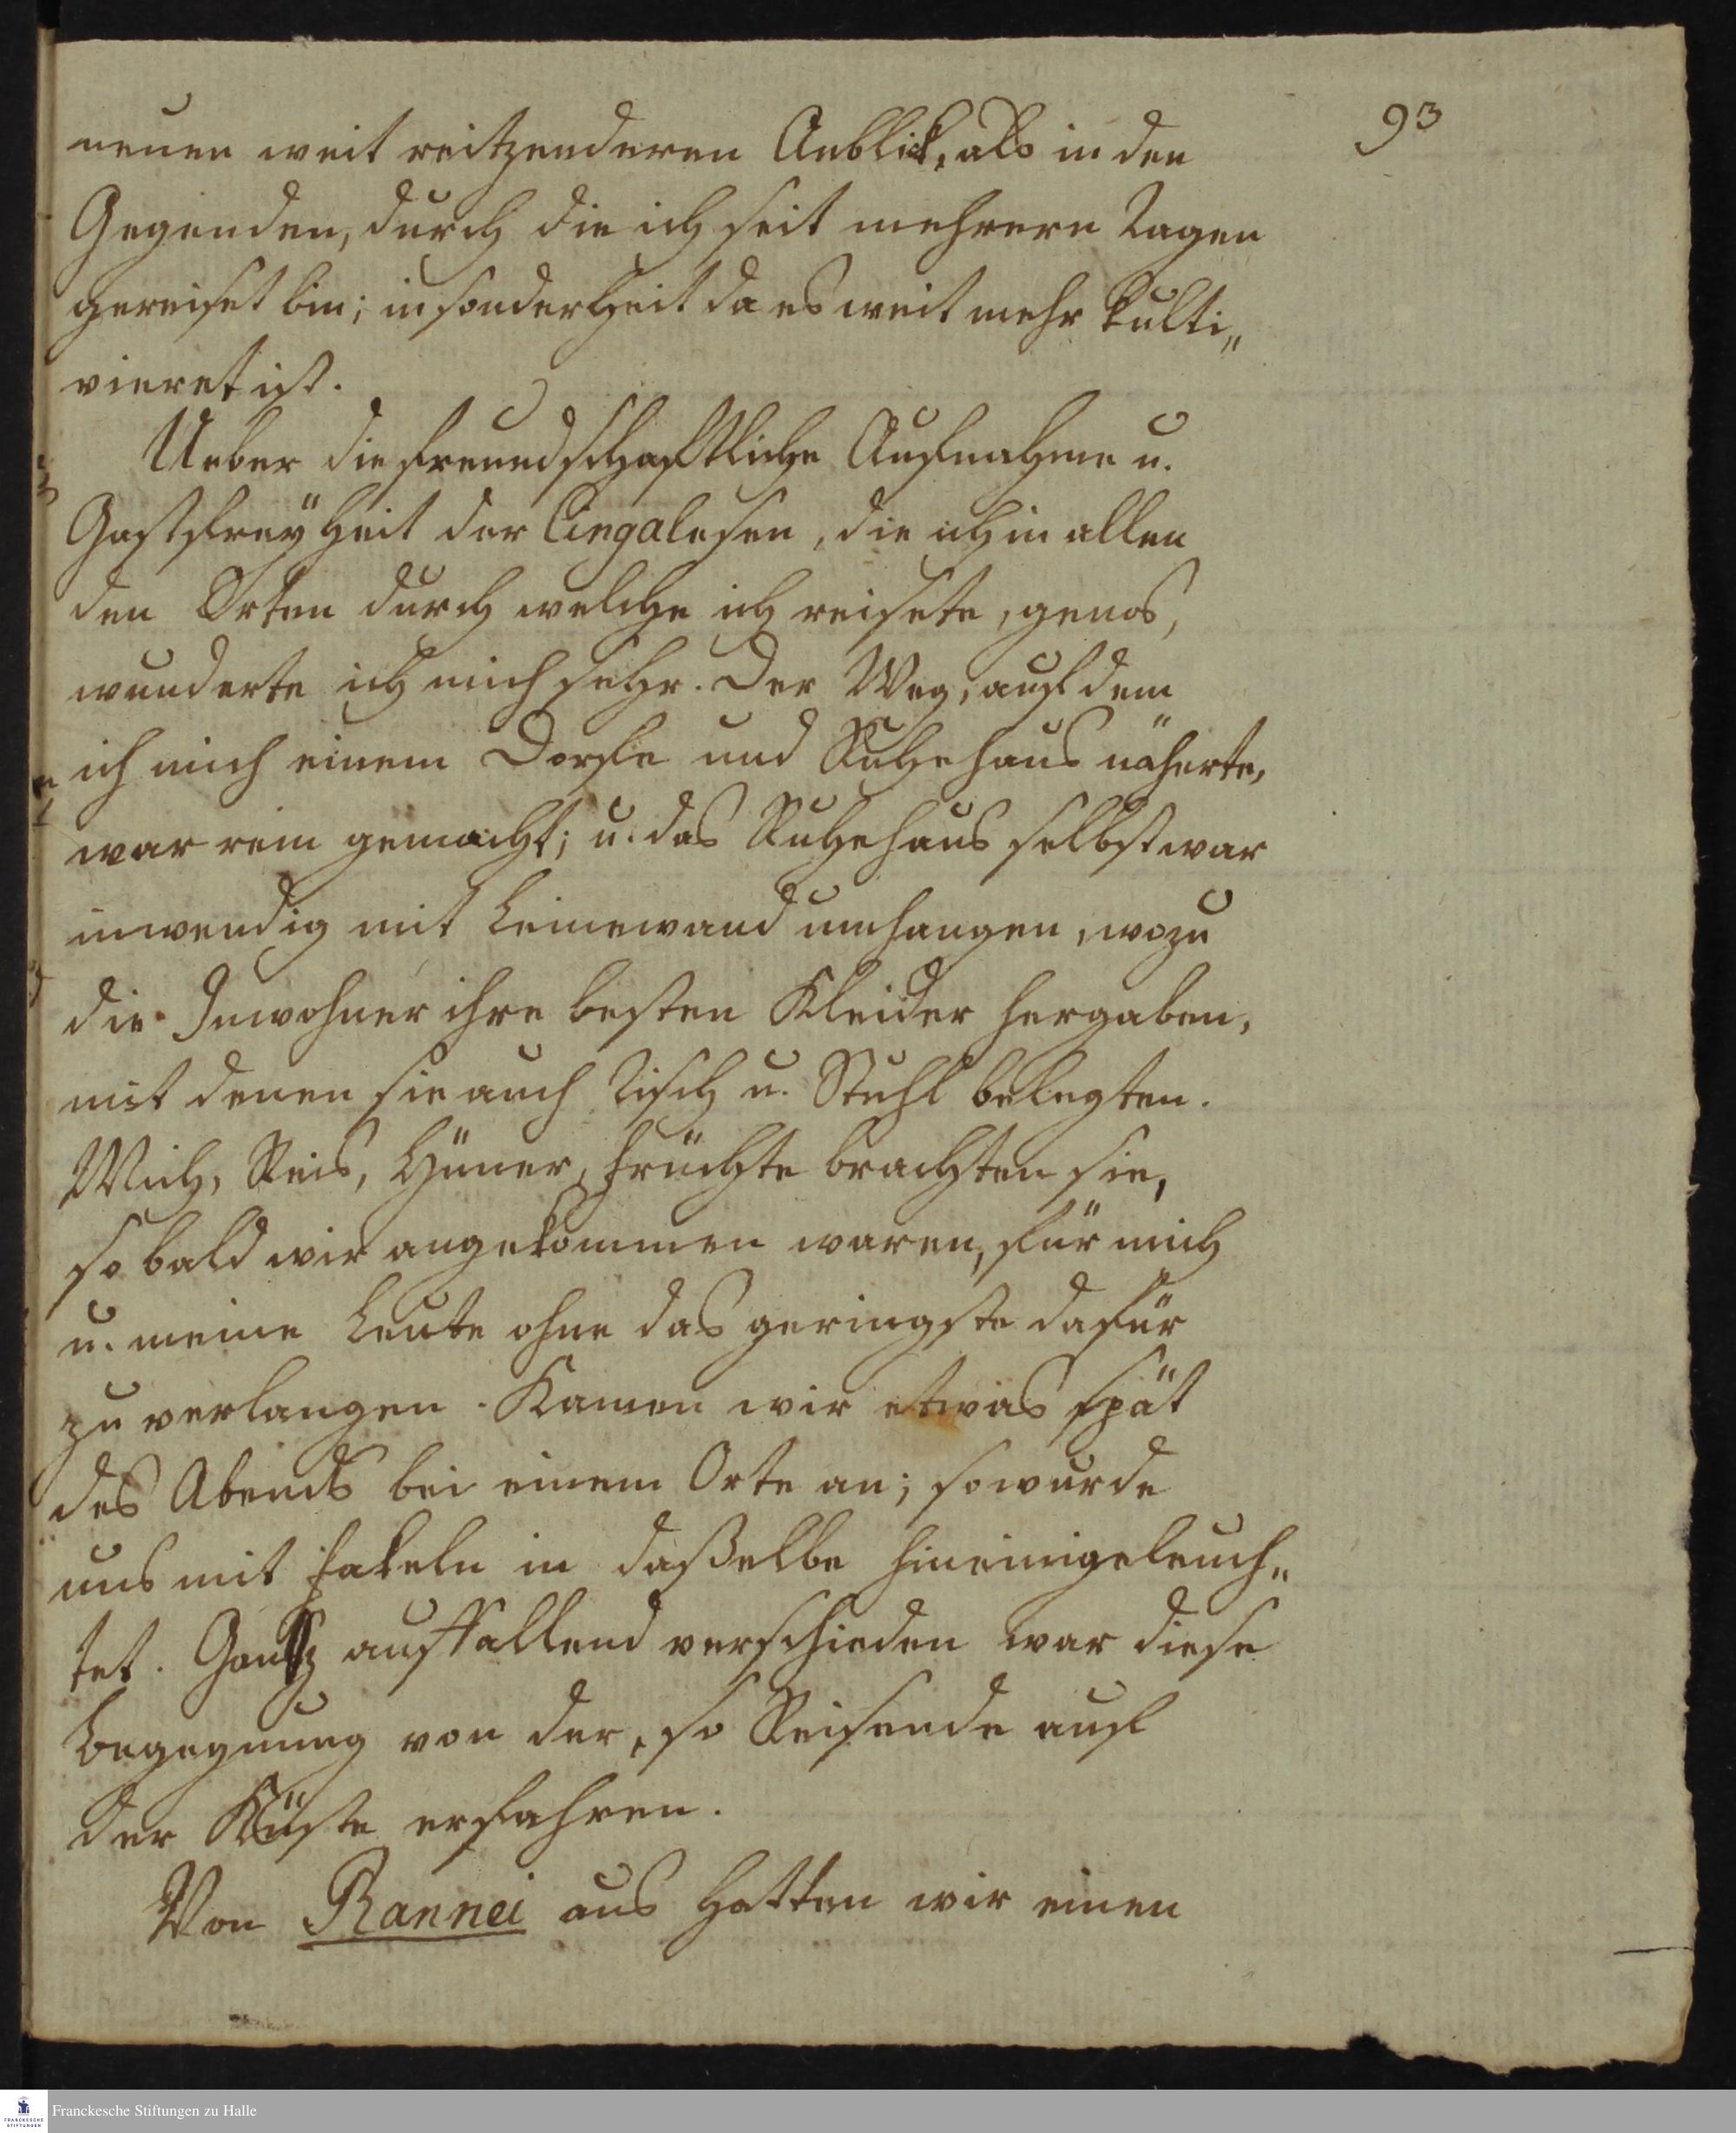 93
neuen weit reitzenderen Anblick, als in den
Gegenden, durch die ich seit mehrern Tagen
gereiset bin; insonderheit da es weit mehr kulti„
vieret ist.
Ueber die freundschaftliche Aufnahme u.
Gastfreyheit der Cingalesen, die ich in allen
den Orten durch welche ich reisete, genos,
wunderte ich mich sehr. Der Weg, auf dem
ich mich einem Dorfe und Ruhehaus näherte,
war rein gemacht; u. das Ruhehaus selbst war
inwendig mit Leinewand umhangen, wozu
die Inwohner ihre besten Kleider hergaben,
mit denen sie auch Tisch u. Stuhl belegten.
Milch, Reis, Hüner, Früchte brachten sie,
so bald wir angekommen waren, für mich
u. meine Leute ohne das geringste dafür
zu verlangen. Kamen wir etwas spät
des Abends bei einem Orte an; so wurde
uns mit Fakeln in daßelbe hineingeleuch„
tet. Gantz auffallend verschieden war diese
Begegnung von der, so Reisende auf
der Küste erfahren.
Von Rannei aus hatten wir einen
Franckesche Stiftungen zu Halle
FRANCKESCHE
STIFTUNGEN